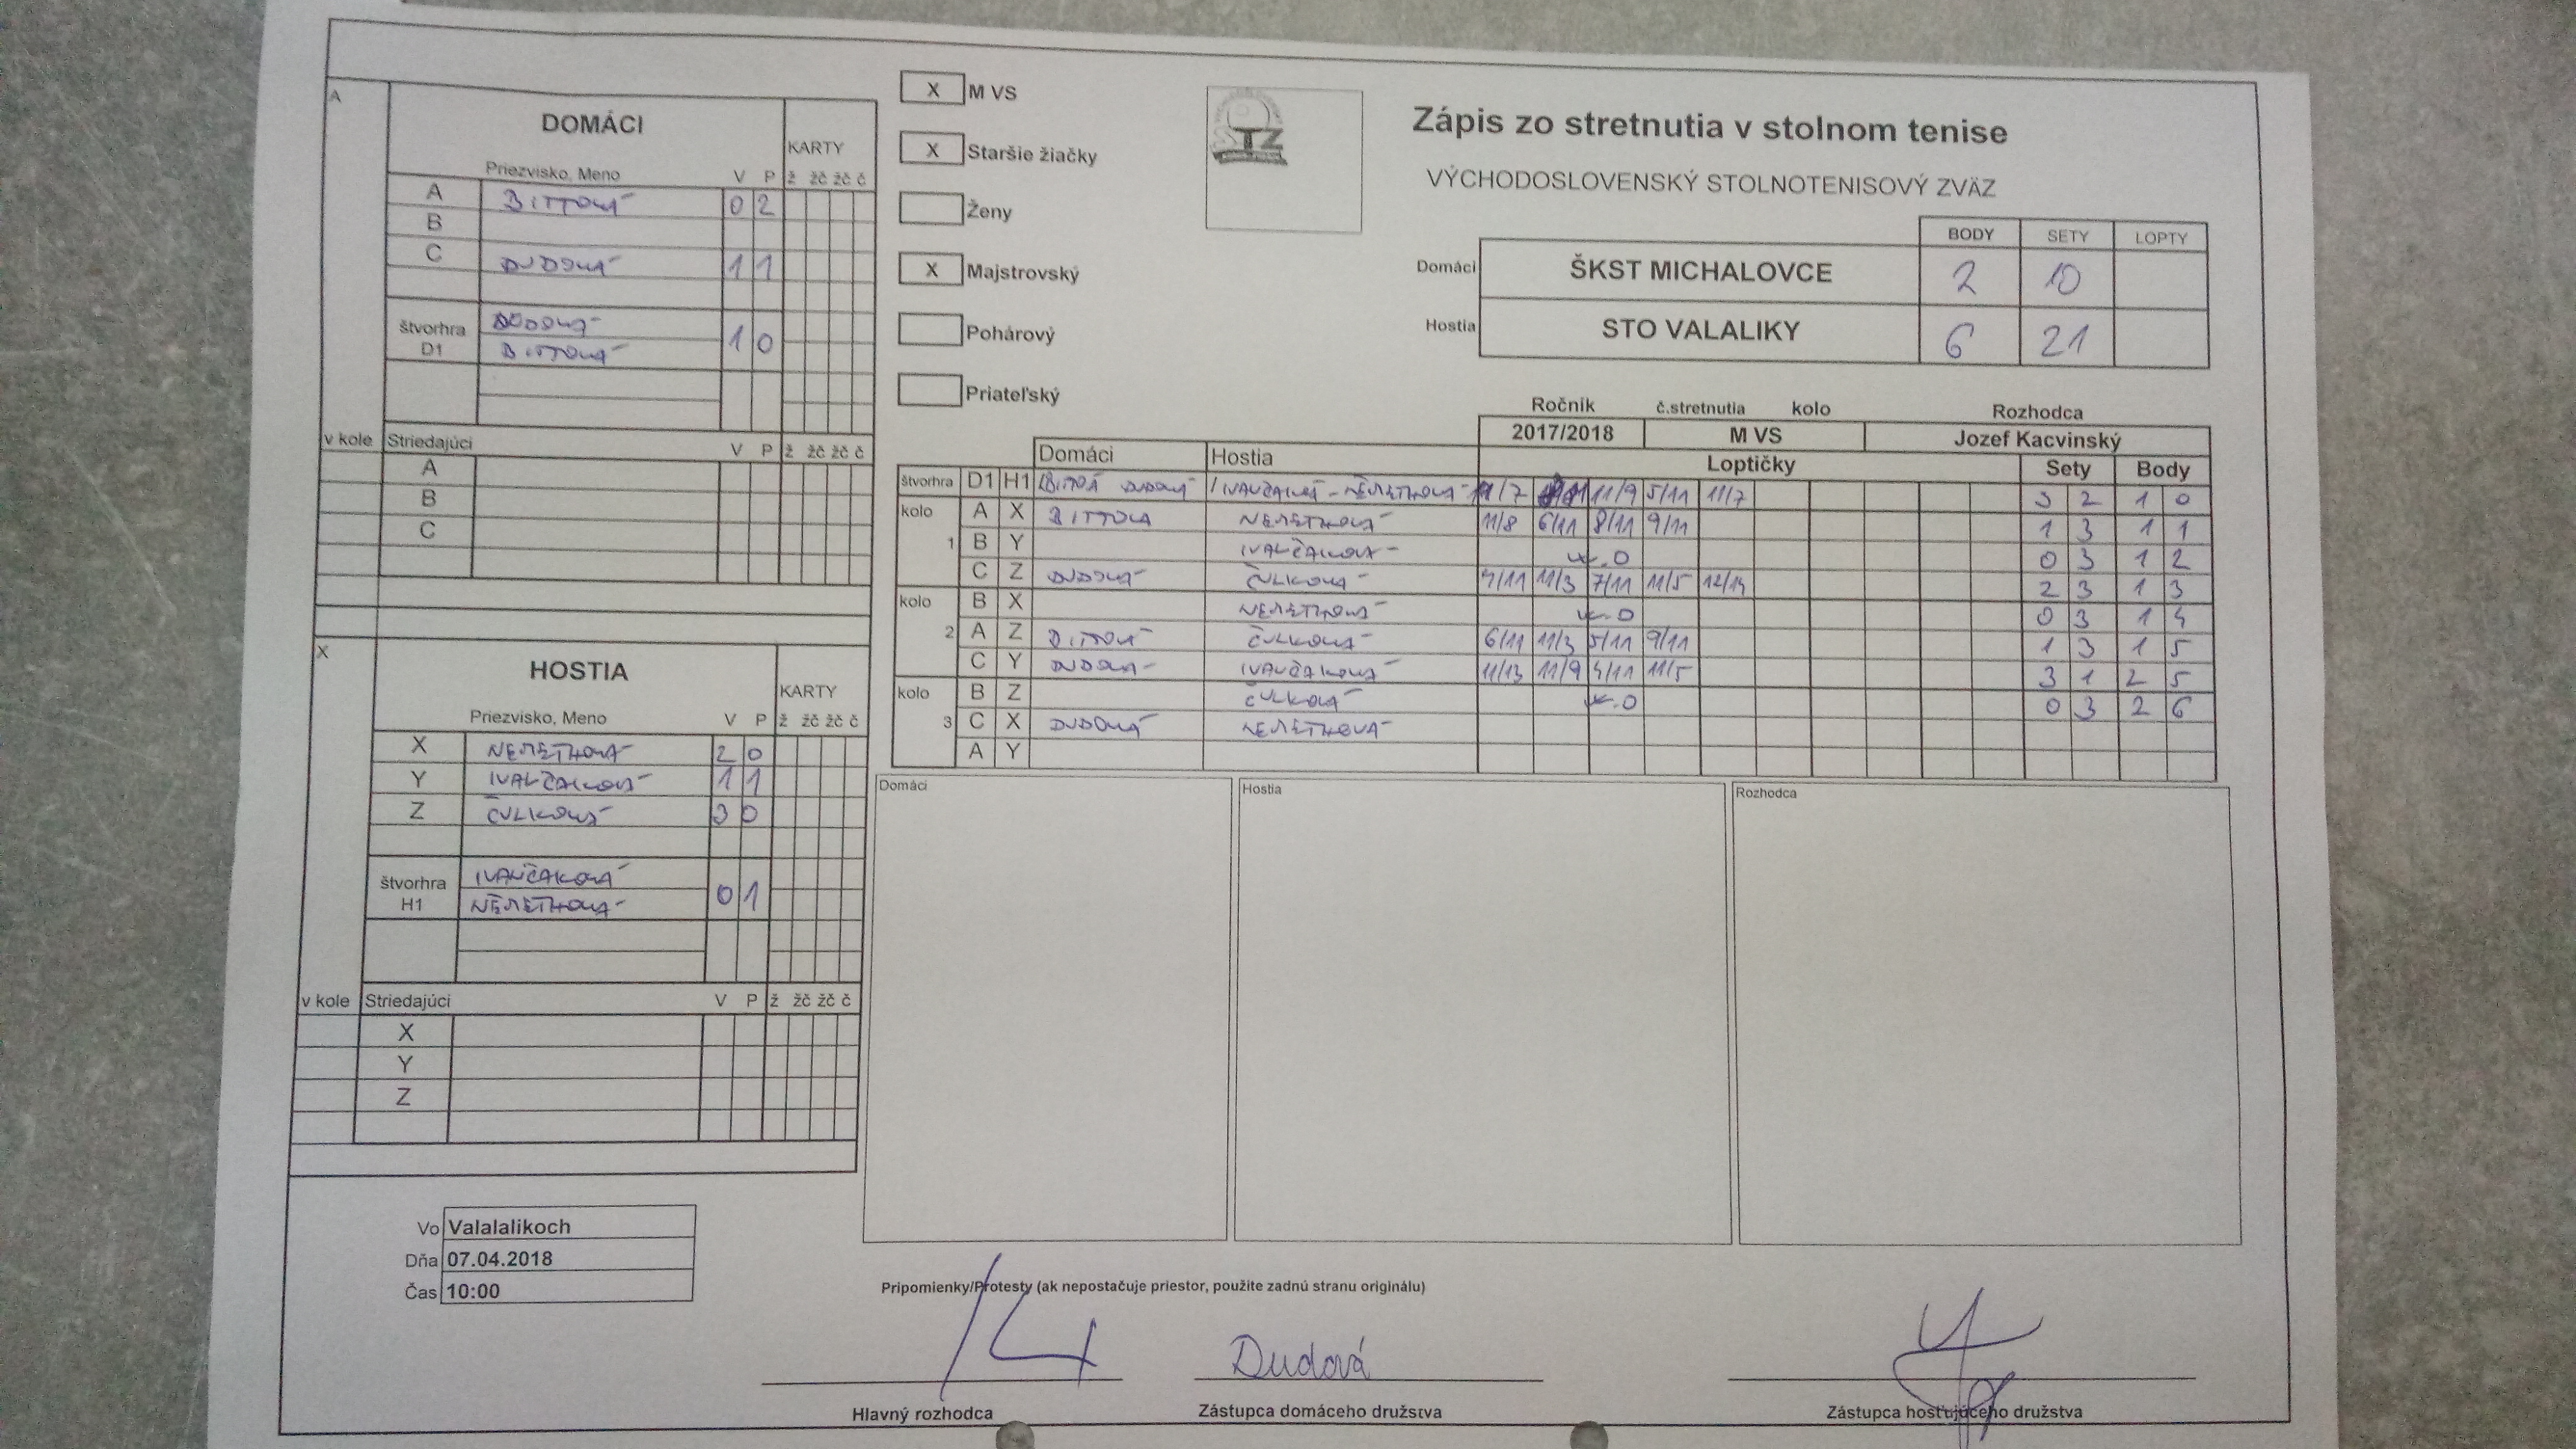 A
DOMÁCI
KARTY
Priezvisko, Meno V P ž žč žč č
A BITTOVÁ 0 2
B
C DUDOVÁ 1 1
štvorhra D1 DUDOVÁ BITTOVÁ 1 0
v kole Striedajúci V P ž žč žč č
A
B
C
X
HOSTIA
KARTY
Priezvisko, Meno V P ž žč žč č
X NEMETHOVÁ 2 0
Y IVANČAKOVÁ 1 1
Z ČULKOVÁ 3 0
štvorhra H1 IVANČAKOVÁ NÉMETHOVÁ 0 1
v kole Striedajúci V P ž žč žč č
X
Y
Z
Vo Valalalikoch
Dňa 07.04.2018
Čas 10:00
X M VS
X Staršie žiačky
Ženy
X Majstrovský
Pohárový
Priateľský
STZ
Zápis zo stretnutia v stolnom tenise
VÝCHODOSLOVENSKÝ STOLNOTENISOVÝ ZVÄZ
BODY SETY LOPTY
Domáci ŠKST MICHALOVCE 2 10
Hostia STO VALALIKY 6 21
Ročník č.stretnutia kolo Rozhodca
2017/2018 M VS Jozef Kacvinský
Domáci Hostia Loptičky Sety Body
štvorhra D1 H1 DUDOVÁ IVANČAKOVÁ - NÉMETHOVÁ 11/7 11/9 5/11 11/7 3 2 1 0
kolo 1
A X BITTOVA NEMETHOVÁ 11/8 6/11 8/11 9/11 1 3 1 1
B Y IVANČAKOVÁ w.o 0 3 1 2
C Z DUDOVÁ ČULKOVÁ 11/3 7/11 11/5 12/14 2 3 1 3
kolo 2
B X NEMETHOVÁ w.o 0 3 1 4
A Z BITTOVÁ ČULKOVÁ 6/11 11/3 5/11 9/11 1 3 1 5
C Y DUDOVÁ IVANČAKOVÁ 11/13 11/9 11/5 3 1 2 5
kolo 3
B Z ČULKOVÁ w.o 0 3 2 6
C X DUDOVÁ NEMETHOVÁ
A Y
Domáci Hostia Rozhodca
Pripomienky/Protesty (ak nepostačuje priestor, použite zadnú stranu originálu)
Dudová
Hlavný rozhodca Zástupca domáceho družstva Zástupca hosťujúceho družstva